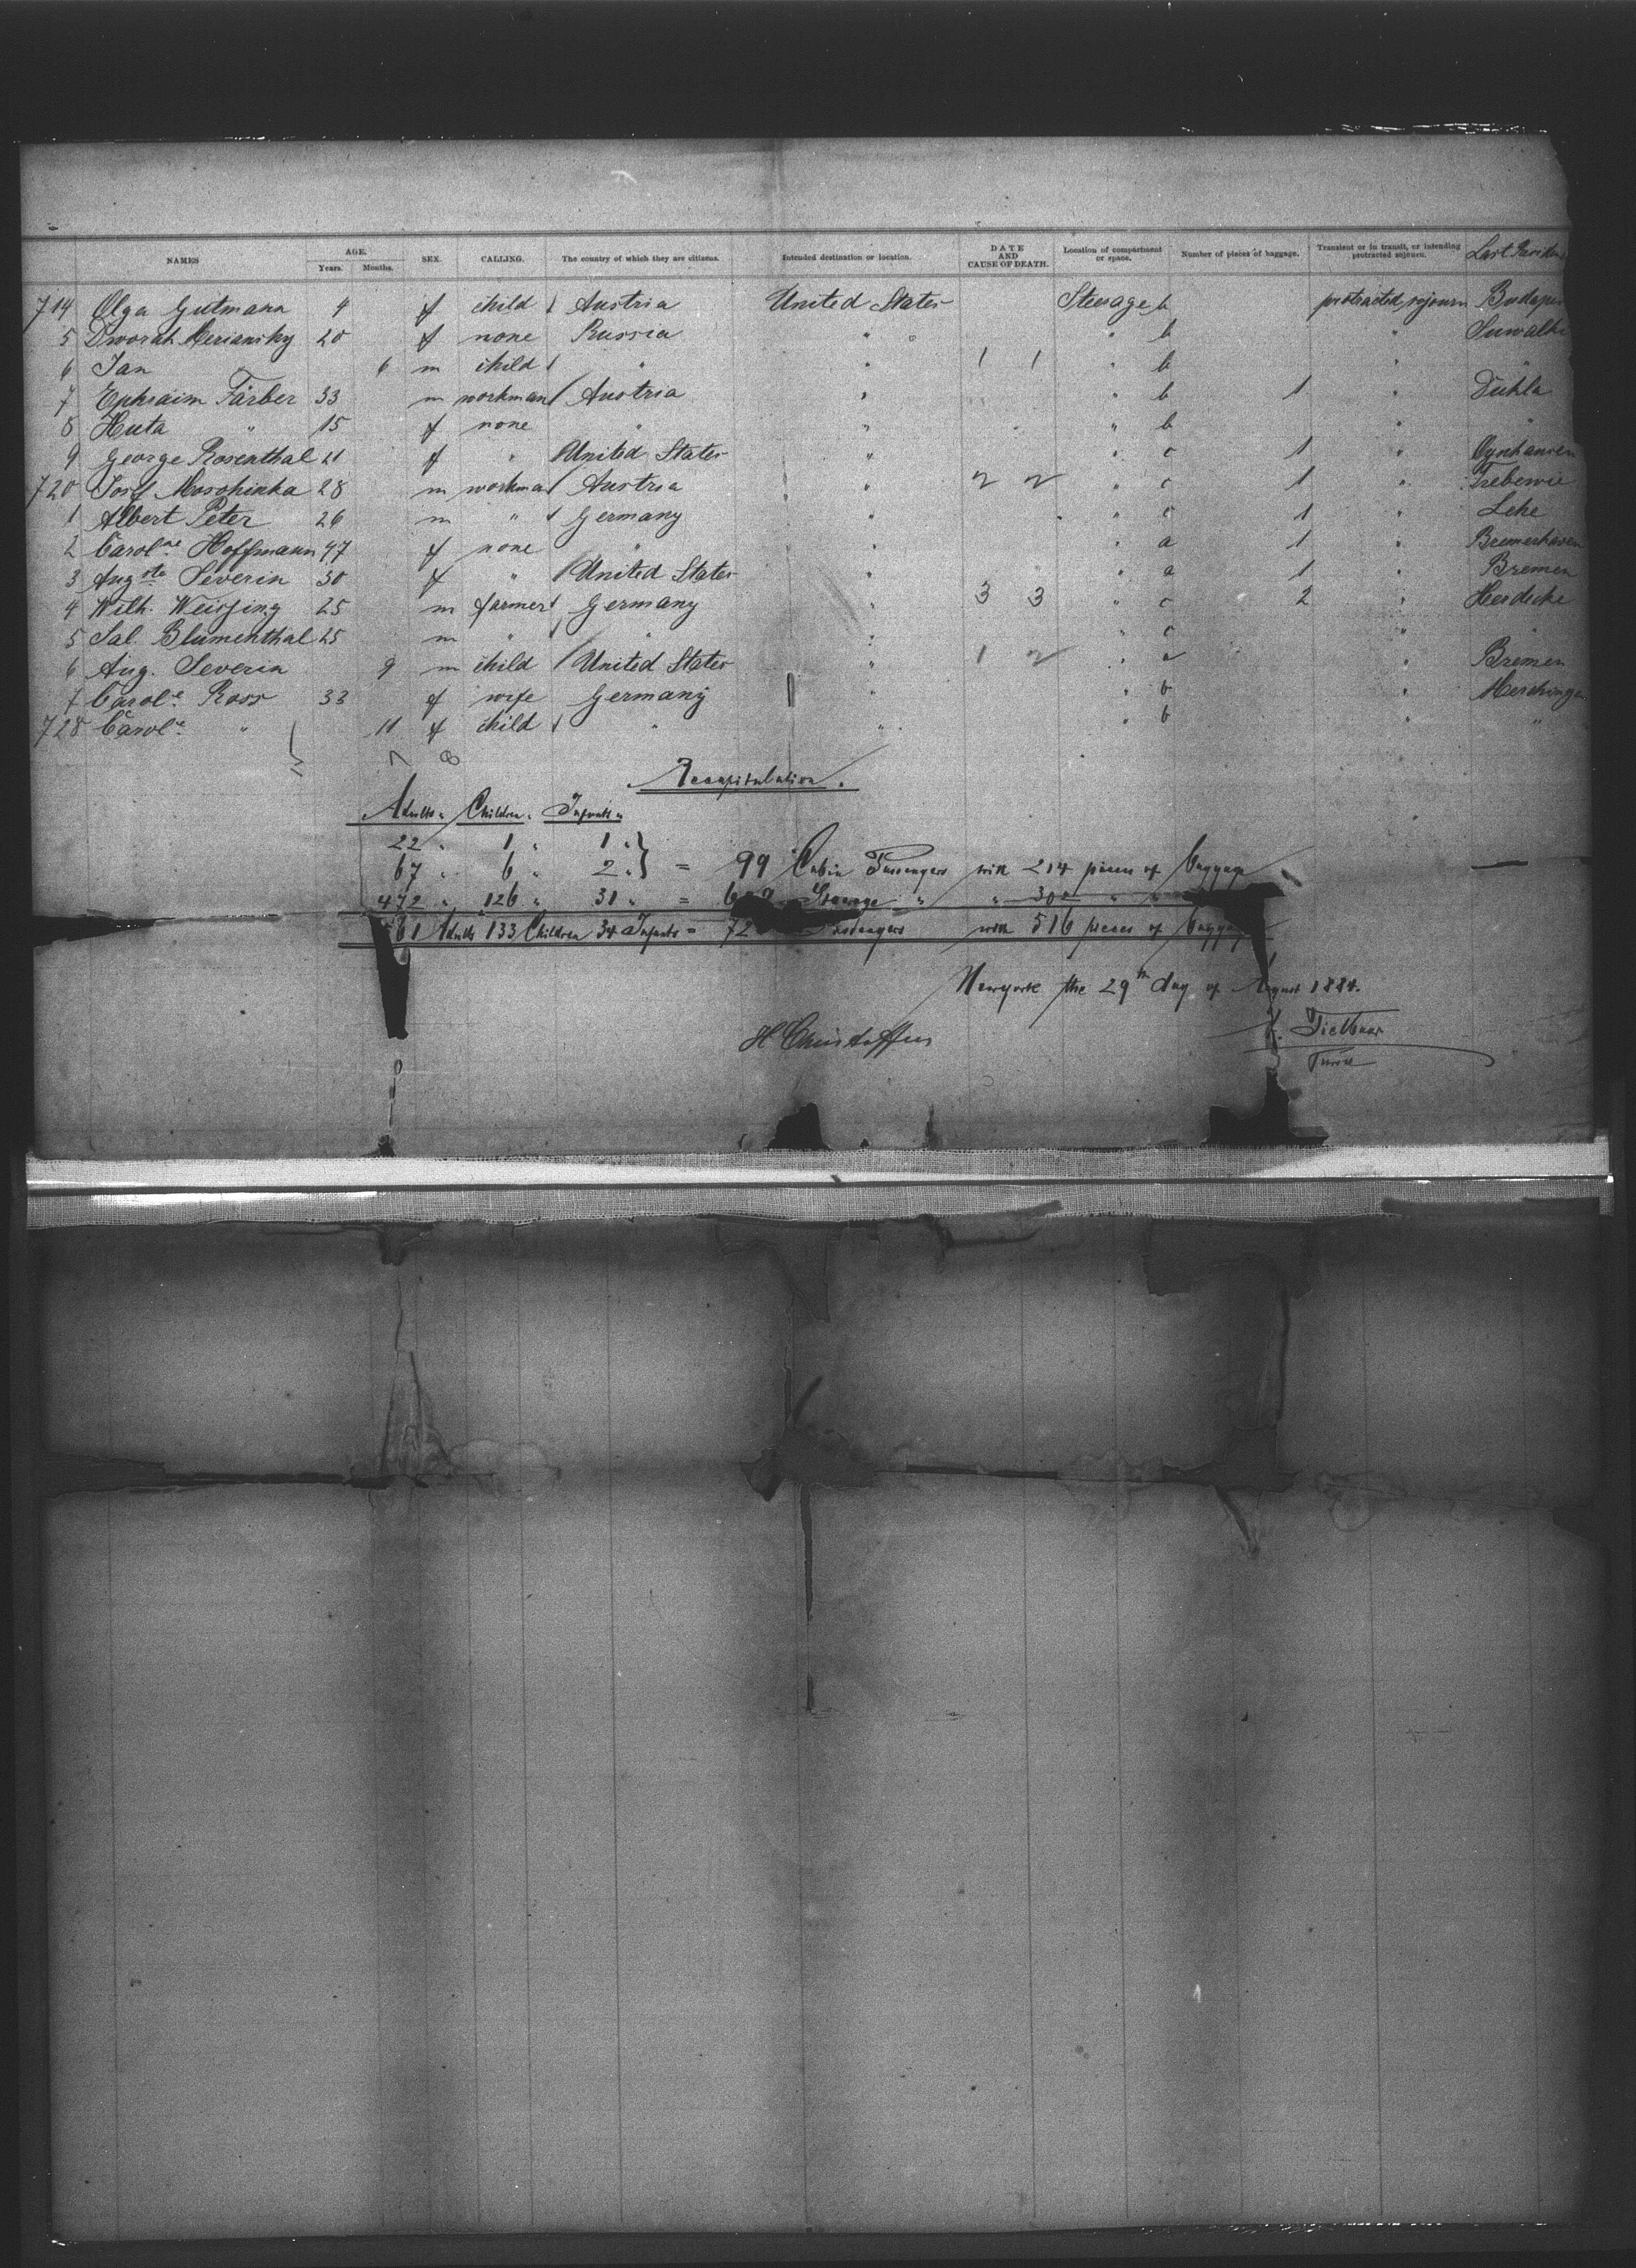 NAMES AGE. Years. Months. SEX. CALLING. The country of which they are citizens. Intended destination or location. DATE AND CAUSE OF DEATH. Location of compartment or space. Number of pieces of baggage. Transient or in transit, or intending protracted sojourn. Last
714 Olga Gutmann 4 f child Austria United States Steerage b protracted sojourn
5 Dworah 20 f none Russia " " b " Suwalki
6 Jan 6 m child " " 1 1 " b " "
7 Ephraim Färber 33 m workman Austria " " b 1 " Dukla
8 Huta " 15 f none " " " b " "
9 George Rosenthal 21 f " United States " " c 1 " Oynhausen
720 Josef 28 m workman Austria " 2 2 " c 1 "
1 Albert Peter 26 m " Germany " " c 1 " Lehe
2 Carol.ne Hoffmann 47 f none " " " a 1 " Bremerhaven
3 Aug.ste Severin 30 f " United States " " a 1 " Bremen
4 Wilh. 25 m farmer Germany " 3 3 " c 2 " Herdecke
5 Sal. Blumenthal 25 m " " " " c " "
6 Aug. Severin 9 m child United States " 1 2 " a " Bremen
7 Carol.e Ross 33 f wife Germany " " b "
728 Carol.e " 11 f child " " " b " "
7 8
Recapitulation.
Adults. Children. Infants.
22 " 1 " 1 "
67 " 6 " 2 " = 99 Cabin Passengers with 214 pieces of Baggage
472 " 126 " 31 " = Steerage " " " "
561 Adults 133 Children 34 Infants = 72 Passengers with 516 pieces of Baggage
Newyork the 29th day of August 1884.
H Christoffers